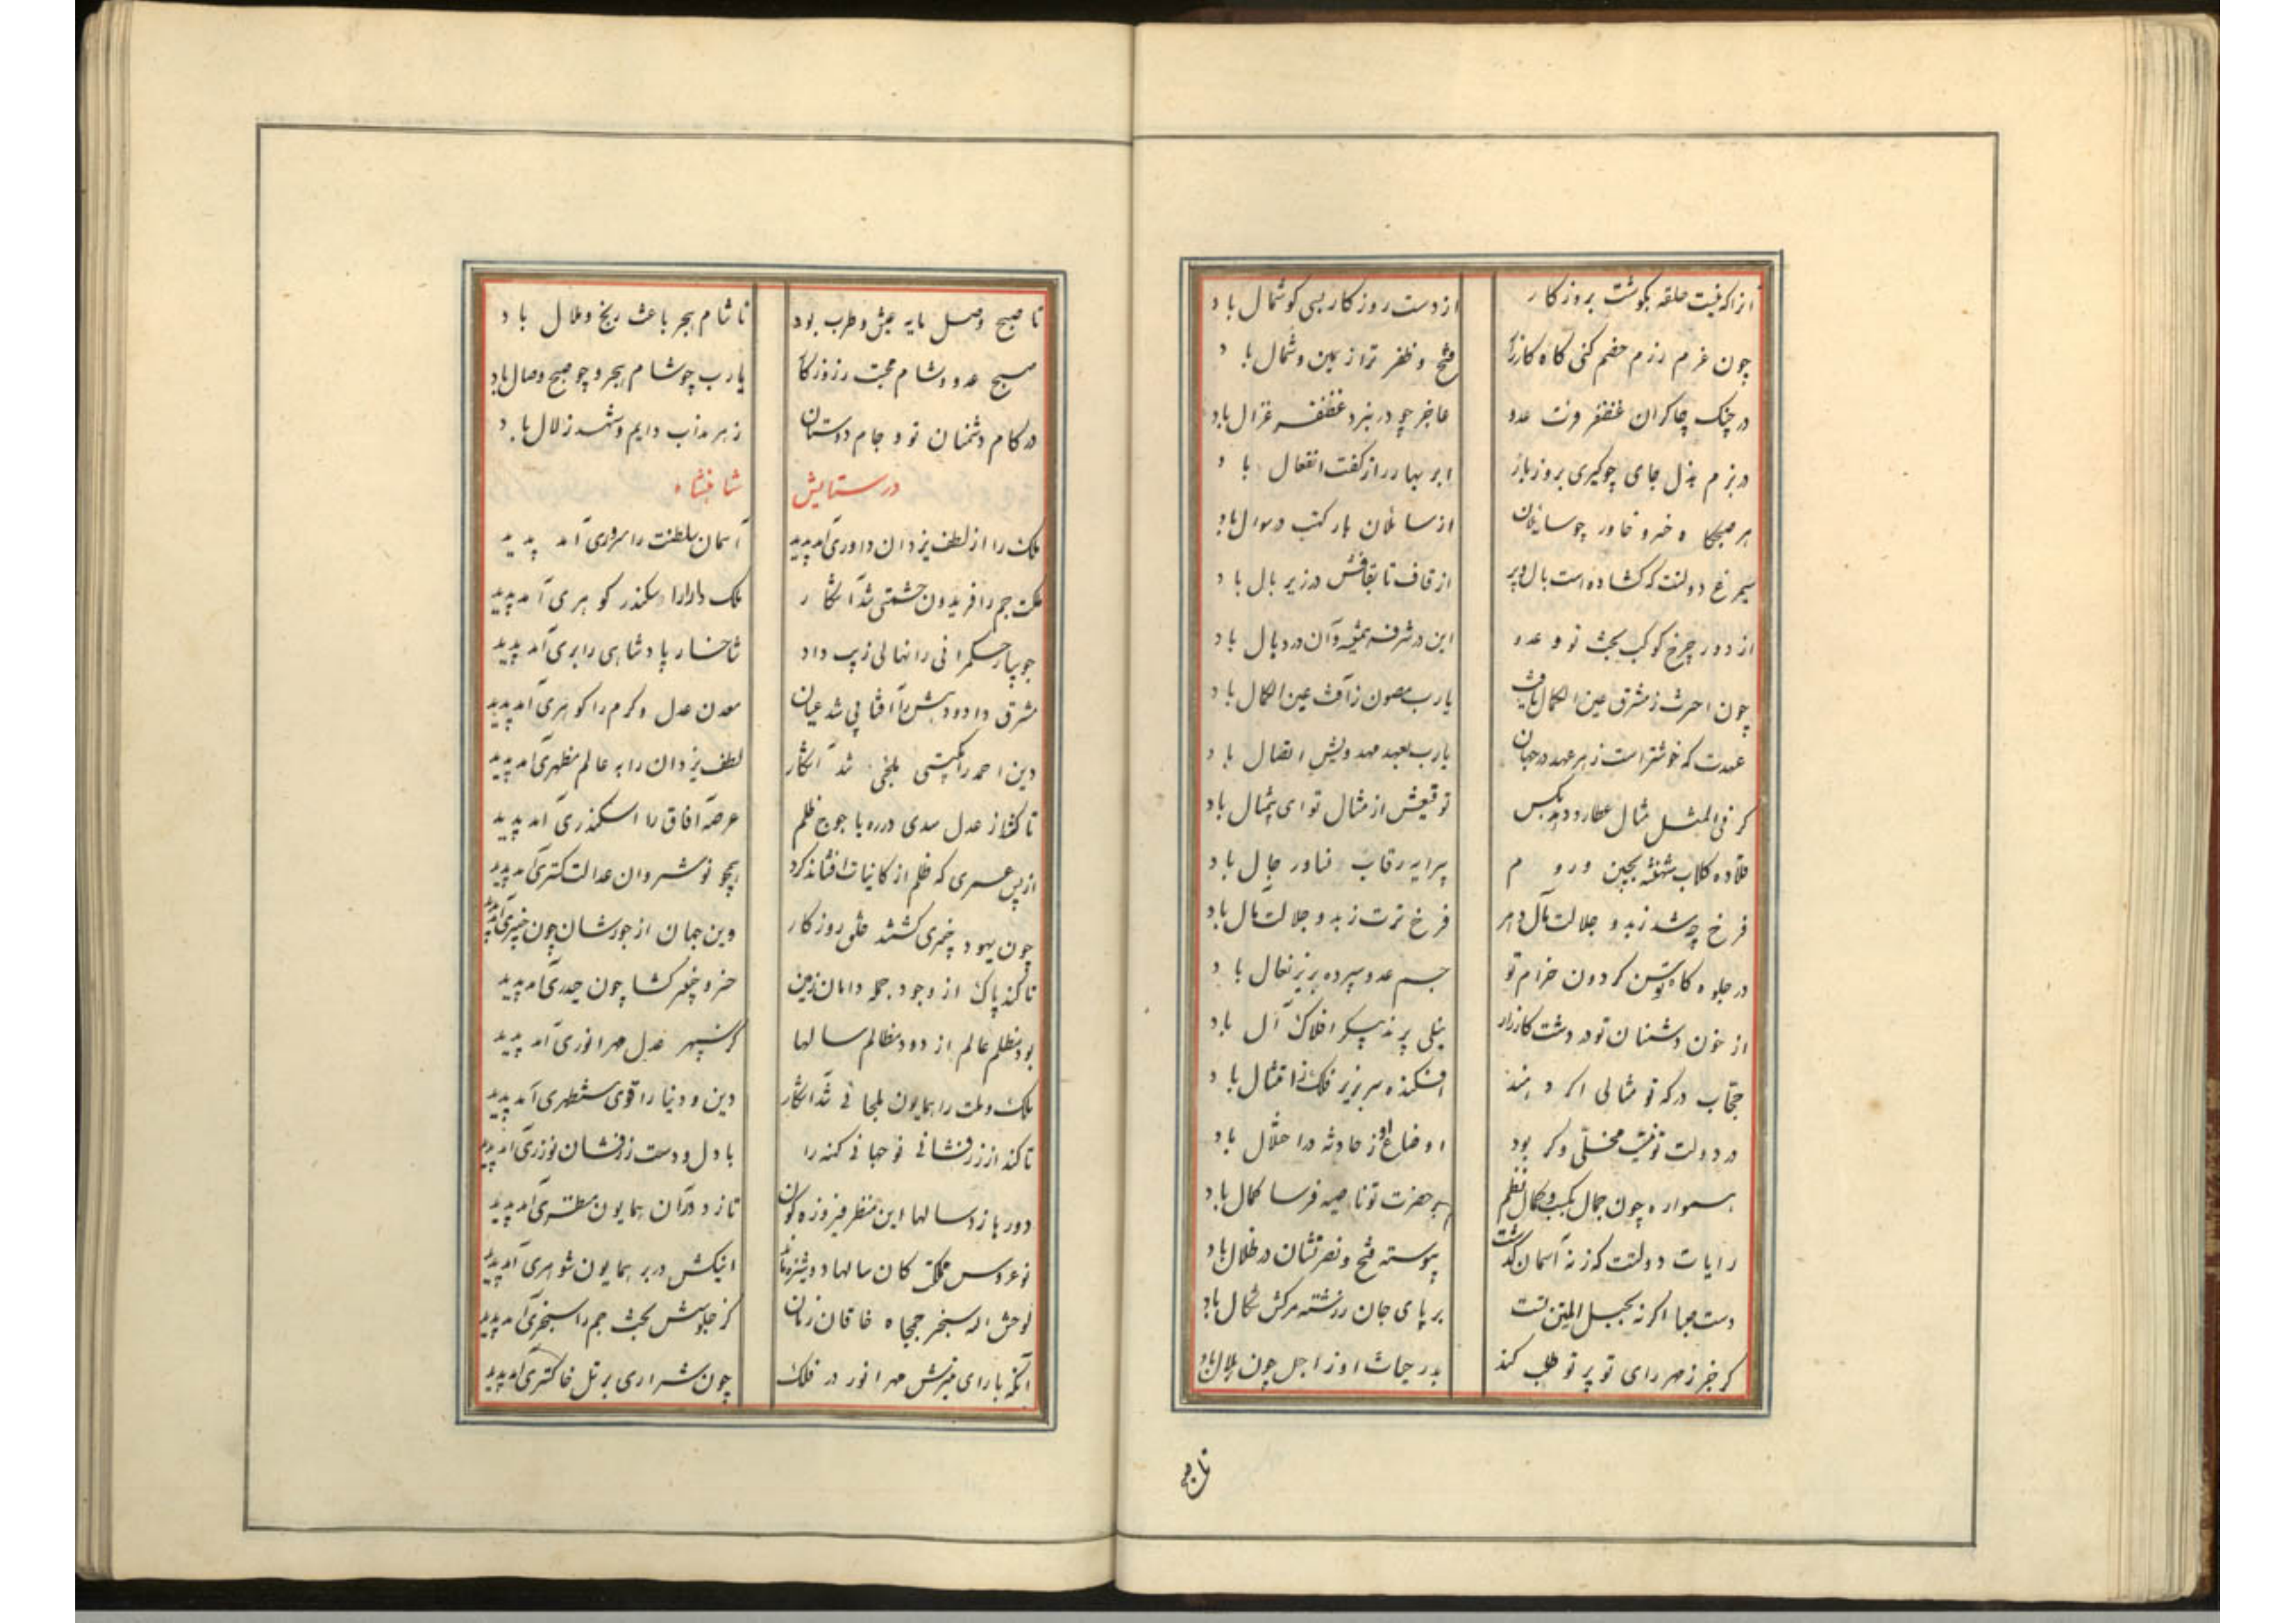 آنرا که نیست حلقه بگوشت بروزکار از دست روزکار بسی کوشمال باد
چون عزم رزم خصم کنی کاه کارزار فتح و ظفر ترا ز یمین و شمال باد
در جنک چاکران غضنفر فرت عدو عاجز چو در نبرد غضنفر غزال باد
در بزم بذل جای چو کیری بروز بار ابر بهار را ز کفت انفعال باد
هر صبحکاه خسرو خاور چو سایلان از سائلان بارکهت در سوال باد
سیمرغ دولتت که کشاده است بال و پر از قاف تا بقافش در زیر بال باد
از دور چرخ کوکب بخت تو و عدو این در شرف همیشه و آن در وبال باد
چون اخترت ز مشرق عین الکمال تافت یارب مصون ز آفت عین الکمال باد
عهدت که خوشتر است ز هر عهد در جهان یارب بعهد مهدویش اتصال باد
کر فی المثل مثال عطارد دهد بکس توقیعش از مثال تو ای بیمثال باد
قلاده کلاب شهنشه بچین و روم پیرایه رقاب جبال باد
فرخ چه شد ز بد و جلالت مآل دهر فرخ ترت ز بد و جلالت مآل باد
در جلوه کاه توسن کردون خرام تو جسم عدو سپرده بزیر نعال باد
از خون دشمنان تو در دشت کارزار نیلی پرند پیکر افلاک آل باد
حجاب درکه تو مثالی اکر دهند افکنده سر بزیر فلک ز امتثال باد
در دولت تو نیست مخلّی وکر بود اوضاع او ز حادثه در اختلال باد
همواره چون جمال بکسب کمال نظم بر حضرت تو ناصیه فرسا کمال باد
رایات دولتت که ز نه آسمان کذشت پیوسته فتح و نصرتشان در ظلال باد
دست بها اکر نه بحبل المتین تست بر پای جان ز رشته مرکش شکال باد
کر جز ز مهر رای تو پرتو طلب کند بدر حیات او ز اجل چون هلال باد
تا صبح
تا صبح وصل مایه عیش و طرب بود تا شام هجر باعث رنج و ملال باد
صبح عدو و شام محبت ز روزکار یارب چو شام هجر و چو صبح وصال باد
در کام دشمنان تو و جام دوستان زهر مذاب دایم و شهد زلال باد
در ستایش شاهنشاه
ملک را از لطف یزدان داوری آمد پدید آسمان سلطنت را سروری آمد پدید
ملکت جم را فریدون حشمتی شد آشکار ملک دارا را سکندر کوهری آمد پدید
جویبار حکمرانی را نهالی زیب داد شاخسار پادشاهی را بری آمد پدید
مشرق داد و دهش را آفتابی شد عیان معدن عدل و کرم را کوهری آمد پدید
دین احمد را ملجئی شد آشکار لطف یزدان را به عالم مظهری آمد پدید
تا کشد از عدل سدی در ره یاجوج ظلم عرصه آفاق را اسکندری آمد پدید
از پس عصری که ظلم از کاینات افشاند کرد همچو نوشروان عدالت کستری آمد پدید
چون یهود خیبری کشتند خلق روزکار وین جهان از جورشان چون خیبری آمد پدید
تا کند پاک از وجود جمله دامان زمین خسرو خیبر کشا چون حیدری آمد پدید
بود مظلم عالم از دود مظالم سالها کز سپهر عدل مهر انوری آمد پدید
ملک و ملت را همایون ملجائی شد آشکار دین و دنیا را قوی مستظهری آمد پدید
تا کند از زرفشانی نو جهانی کهنه را با دل و دست زرافشان نوذری آمد پدید
دورها زد سالها این منظر فیروزه کون تا ز دور آن همایون منظری آمد پدید
نو عروس مملکت کان سالها دوشیزه ماند اینکش در بر همایون شوهری آمد پدید
لوحش اله سنجر جمجاه خاقان زمان کز جلوسش تخت جم را سنجری آمد پدید
آنکه با رای منیرش مهر انور در فلک چون شراری بر تل خاکستری آمد پدید